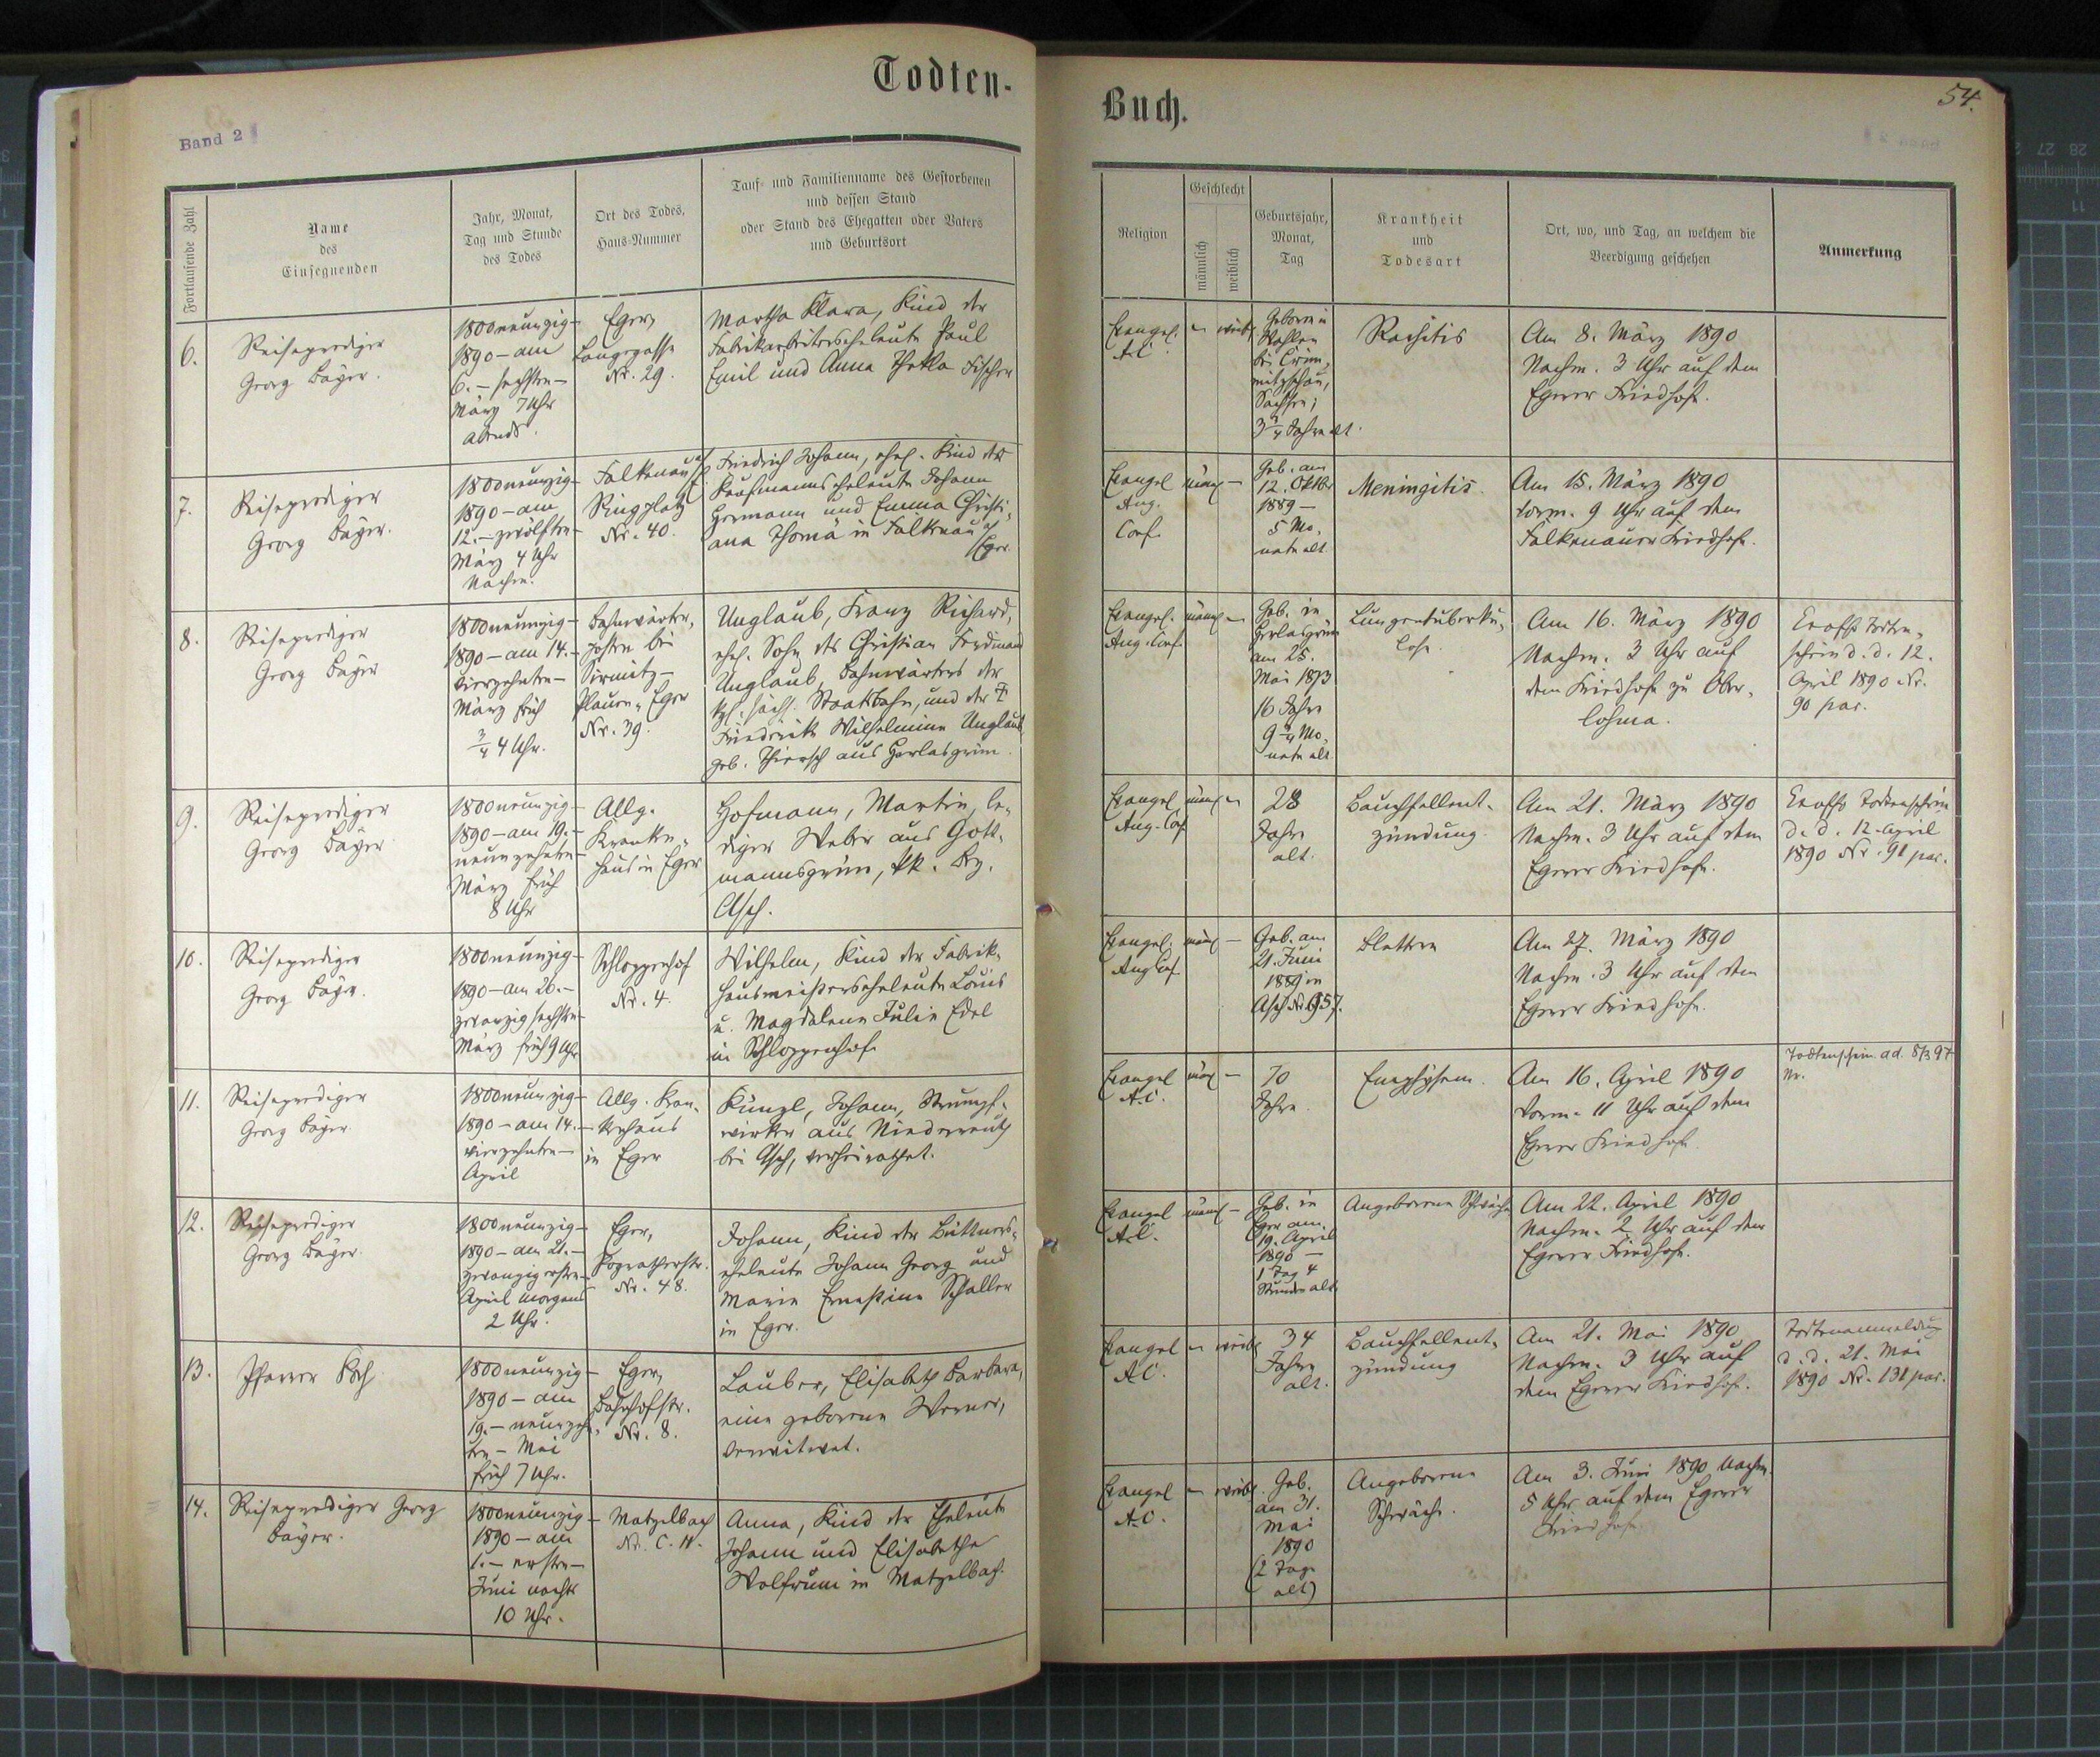 Todten-
Buch.
54.
Band 2
Fortlaufende Zahl
Name
des
Einsegnenden
Jahr, Monat,
Tag und Stunde
des Todes
Ort des Todes,
Haus-Nummer
Tauf- und Familienname des Gestorbenen
und dessen Stand
oder Stand des Ehegatten oder Vaters
und Geburtsort
Religion
Geschlecht
männlich
weiblich
Geburtsjahr,
Monat,
Tag
Krankheit
und
Todesart
Ort, wo, und Tag, an welchem die
Beerdigung geschehen
Anmerkung
6.
Reiseprediger
Georg Bayer.
1800neunzig-
1890 – am
6. – sechsten –
März 7 Uhr
abends.
Eger,
Langegasse
Nr. 29.
Martha Klara, Kind der
Fabrikarbeiterseheleute Paul
Emil und Anna Thekla Fischer
Evangel.
A.C.
– weibl
Geboren in
bei Crim-
mitzschau,
Sachsen;
3 3/4 Jahre alt.
Rachitis
Am 8. März 1890
Nachm. 3 Uhr auf dem
Egerer Friedhofe.
7.
Reiseprediger
Georg Bayer.
1800neunzig-
1890 – am
12. – zwölften –
März 4 Uhr
Nachm.
Falkenau a/E
Ringplatz
Nr. 40.
Friedrich Johann, ehel. Kind der
Kaufmannseheleute Johann
Hermann und Emma Christi-
ana Thomä in Falkenau a/
Eger.
Evangel
Aug.
Conf.
männl –
Geb. am
12. Oktbr
1889 –
5 Mo-
nate alt
Meningitis.
Am 15. März 1890
Vorm. 9 Uhr auf dem
Falkenauer Friedhofe.
8.
Reiseprediger
Georg Bayer
1800neunzig-
1890 – am 14. –
vierzehnten –
März früh
3/4 4 Uhr.
Bahnwärter-
posten bei
Sirmitz –
Plauen-Eger
Nr. 39.
Unglaub, Franz Richard,
ehel. Sohn des Christian Ferdinand
Unglaub, Bahnwärters der
kgl. sächs. Staatsbahn, und der †
Friedrike Wilhelmine Unglaub
geb. Thiersch aus Herlasgrün.
Evangel.
Aug. Conf
männl –
Geb. in
Herlasgrün
am 25.
Mai 1873
16 Jahre
9 3/4 Mo-
nate alt.
Lungentuberku-
lose.
Am 16. März 1890
Nachm. 3 Uhr auf
dem Friedhofe zu Ober-
lohma.
Exoffo Todten-
schein d. d. 12.
April 1890 Nr.
90 par.
9.
Reiseprediger
Georg Bayer
1800neunzig-
1890 – am 19. –
neunzehnten –
März früh
8 Uhr
Allg.
Kranken-
haus in Eger
Hofmann, Martin, le-
diger Weber aus Gott-
mannsgrün, kk. Bz.
Asch.
Evangel
Aug. Conf
männl –
28
Jahre
alt.
Bauchfellent-
zündung.
Am 21. März 1890
Nachm. 3 Uhr auf dem
Egerer Friedhofe.
Exoffo Todtenschein
d. d. 12. April
1890 Nr. 91 par.
10.
Reiseprediger
Georg Bayer.
1800neunzig-
1890 – am 26. –
zwanzigsechsten –
März früh 9 Uhr
Schloppenhof
Nr. 4.
Wilhelm, Kind der Fabrik-
hausmeisterseheleute Louis
u. Magdalena Julie Edel
in Schloppenhof.
Evangel.
Aug Conf
männl –
Geb. am
21. Juni
1889 in
Asch Nr. 957.
Blattern
Am 27. März 1890
Nachm. 3 Uhr auf dem
Egerer Friedhofe.
11.
Reiseprediger
Georg Bayer.
1800neunzig-
1890 – am 14. –
vierzehnten –
April
Allg. Kran-
kenhaus
in Eger
Künzl, Johann, Strumpf-
wirker aus Niederreuth
bei Asch, verheirathet.
Evangel
A.C.
männl –
70
Jahre.
Emphysem.
Am 16. April 1890
Vorm. 11 Uhr auf dem
Egerer Friedhofe.
Todtenschein ad. 8/3 97
Nr.
12.
Reiseprediger
Georg Bayer.
1800neunzig-
1890 – am 21. –
zwanzigersten –
April morgens
2 Uhr.
Eger,
Pogratherstr.
Nr. 48.
Johann, Kind der Büttners-
eheleute Johann Georg und
Marie Ernestine Schaller
in Eger.
Evangel
A.C.
männl –
Geb. in
Eger am
19. April
1890 –
1 Tag 4
Stunden alt
Angeborene Schwäche
Am 22. April 1890
Nachm. 2 Uhr auf dem
Egerer Friedhofe.
13.
Pfarrer
1800neunzig-
1890 – am
19. – neunzehn-
ten – Mai
früh 7 Uhr.
Eger,
Bahnhofstr.
Nr. 8.
Lauber, Elisabeth Barbara,
eine geborene Werner,
verwitwet.
Evangel
A.C.
– weibl
34
Jahre
alt.
Bauchfellent-
zündung
Am 21. Mai 1890
Nachm. 3 Uhr auf
dem Egerer Friedhofe.
Todtenanmeldung
d. d. 21. Mai
1890 Nr. 131 par.
14.
Reiseprediger Georg
Bayer.
1800neunzig-
1890 – am
1. – ersten –
Juni nachts
10 Uhr.
Matzelbach
Nr. C. 14.
Anna, Kind der Eheleute
Johann und Elisabetha
Wolfrum in Matzelbach.
Evangel
A.C.
– weibl.
Geb.
am 31.
Mai
1890
(2 Tage
alt)
Angeborene
Schwäche.
Am 3. Juni 1890 Nachm.
5 Uhr auf dem Egerer
Friedhofe